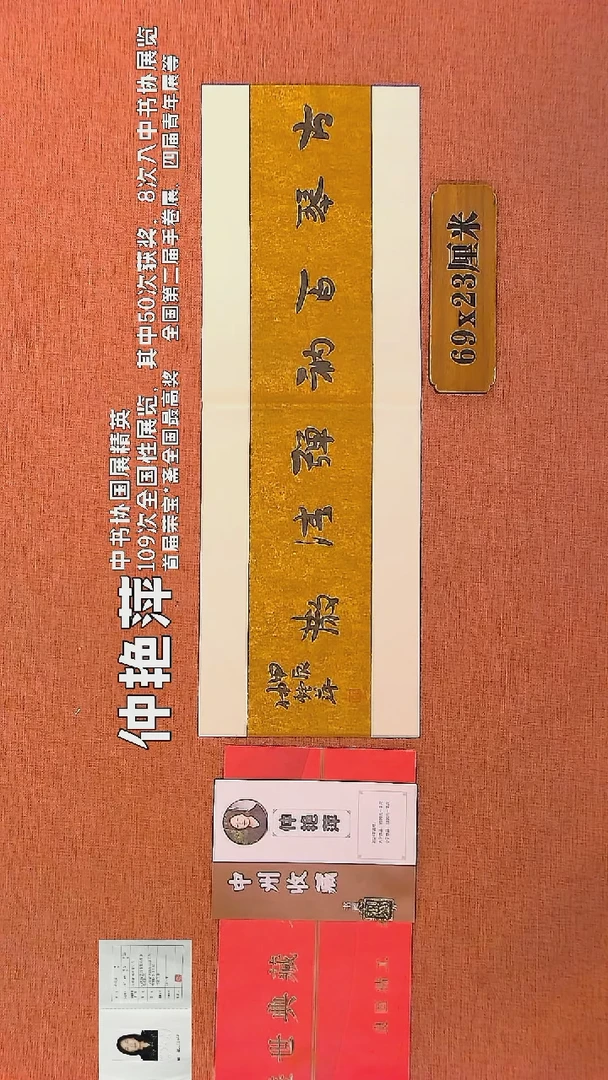 仲艳萍
中书协国展精英
109次全国性展览，其中50次获奖，8次入中书协展览
首届荣宝斋全国最高奖 全国第二届手卷展，四届青年展等
古琴百衲彈清散
69x23厘米
仲艳萍
中州收藏
世典藏